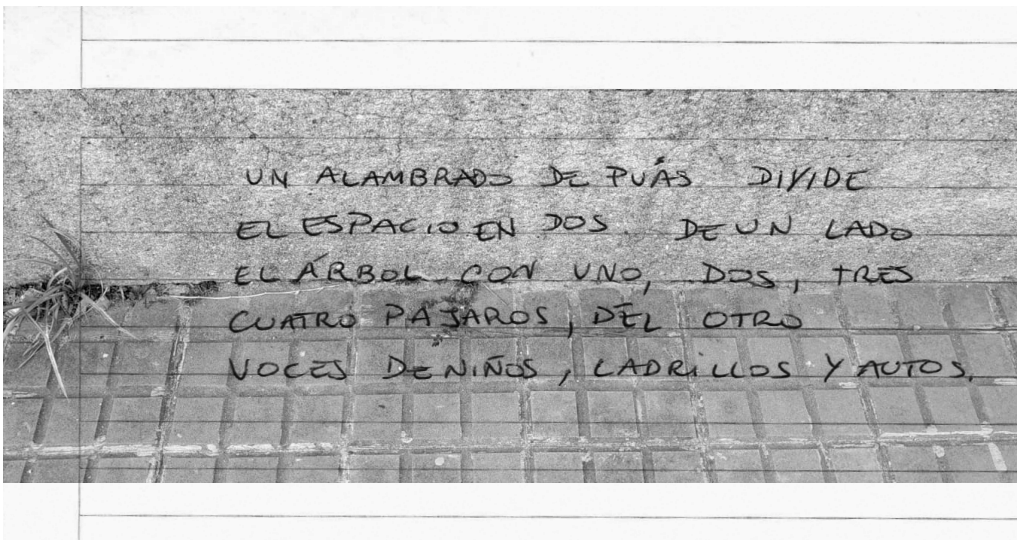 UN ALAMBRADO DE PUÁS DIVIDE
EL ESPACIO EN DOS. DE UN LADO
EL ÁRBOL CON UNO, DOS, TRES
CUATRO PAJAROS, DEL OTRO
VOCES DE NIÑOS, LADRILLOS Y AUTOS.